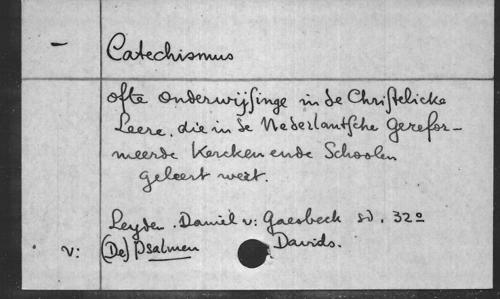 — Catechismus
ofte onderwijsinge in de Christelicke
Leere, die in de Nederlantsche Gerefor-
meerde Kercken ende Schoolen
geleert wert.
Leyden. Daniel v: Gaesbeck sd. 32º
v: (De) Psalmen Davids.